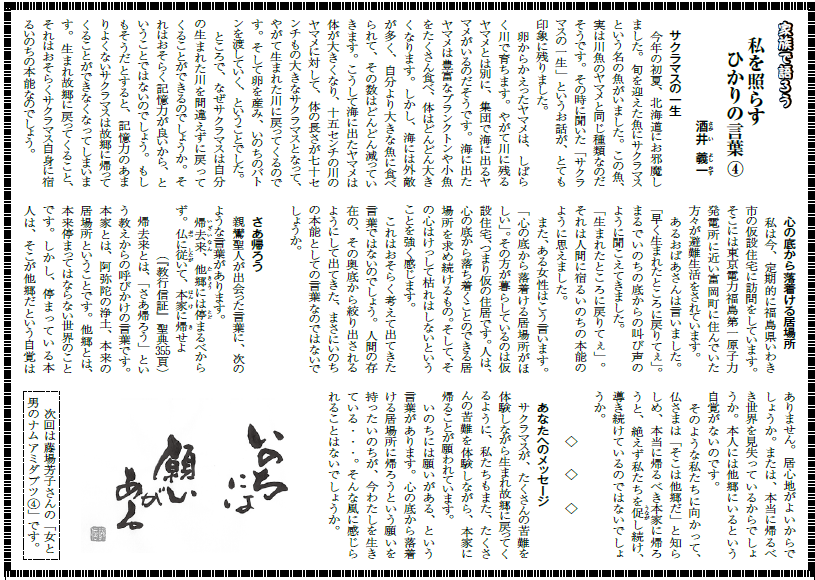 家族で語ろう
私を照らす
ひかりの言葉④
酒井 義一
サクラマスの一生
今年の初夏、北海道にお邪魔し
ました。旬を迎えた魚にサクラマス
という名の魚がいました。この魚、
実は川魚のヤマメと同じ種類なのだ
そうです。その時に聞いた「サクラ
マスの一生」というお話が、とても
印象に残りました。
卵からかえったヤマメは、しばら
く川で育ちます。やがて川に残る
ヤマメとは別に、集団で海に出るヤ
マメがいるのだそうです。海に出た
ヤマメは豊富なプランクトンや小魚
をたくさん食べ、体はどんどん大き
くなります。しかし、海には外敵
が多く、自分より大きな魚に食べ
られて、その数はどんどん減ってい
きます。こうして海に出たヤマメは
体が大きくなり、十五センチの川の
ヤマメに対して、体の長さが七十セ
ンチもの大きなサクラマスとなって、
やがて生まれた川に戻ってくるので
す。そして卵を産み、いのちのバト
ンを渡していく、ということでした。
ところで、なぜサクラマスは自分
の生まれた川を間違えずに戻って
くることができるのでしょうか。そ
れはおそらく記憶力が良いから、と
いうことではないのでしょう。もし
もそうだとすると、記憶力のあま
りよくないサクラマスは故郷に帰って
くることができなくなってしまいま
す。生まれ故郷に戻ってくること、
それはおそらくサクラマス自身に宿
るいのちの本能なのでしょう。
心の底から落着ける居場所
私は今、定期的に福島県いわき
市の仮設住宅に訪問をしています。
そこには東京電力福島第一原子力
発電所に近い富岡町に住んでいた
方々が避難生活をされています。
あるおばあさんは言いました。
「早く生まれたところに戻りてぇ」。
まるでいのちの底からの叫び声の
ように聞こえてきました。
「生まれたところに戻りてぇ」。
それは人間に宿るいのちの本能の
ように思えました。
また、ある女性はこう言います。
「心の底から落着ける居場所がほ
しい」。その方が暮らしているのは仮
設住宅、つまり仮の住居です。人は、
心の底から落ち着くことのできる居
場所を求め続けるもの。そして、そ
の心はけっして枯れはしないという
ことを強く感じます。
これはおそらく考えて出てきた
言葉ではないのでしょう。人間の存
在の、その奥底から絞り出される
ようにして出てきた、まさにいのち
の本能としての言葉なのではないで
しょうか。
さあ帰ろう
親鸞聖人が出会った言葉に、次の
ような言葉があります。
帰去来、他郷には停まるべから
ず。仏に従いて、本家に帰せよ
（『教行信証』聖典355頁）
帰去来とは、「さあ帰ろう」とい
う教えからの呼びかけの言葉です。
本家とは、阿弥陀の浄土、本来の
居場所ということです。他郷とは、
本来停まってはならない世界のこと
です。しかし、停まっている本
人は、そこが他郷だという自覚は
ありません。居心地がよいからで
しょうか。または、本当に帰るべ
き世界を見失っているからでしょ
うか。本人には他郷にいるという
自覚がないのです。
そのような私たちに向かって、
仏さまは「そこは他郷だ」と知ら
しめ、本当に帰るべき本家に帰ろ
うと、絶えず私たちを促し続け、
導き続けているのではないでしょ
うか。
◇ ◇ ◇
あなたへのメッセージ
サクラマスが、たくさんの苦難を
体験しながら生まれ故郷に戻ってく
るように、私たちもまた、たくさ
んの苦難を体験しながら、本家に
帰ることが願われています。
いのちには願いがある、という
言葉があります。心の底から落着
ける居場所に帰ろうという願いを
持ったいのちが、今わたしを生き
ている・・・。そんな風に感じら
れることはないでしょうか。
いのち
には
願い
が
ある
次回は藤場芳子さんの「女と
男のナムアミダブツ④」です。